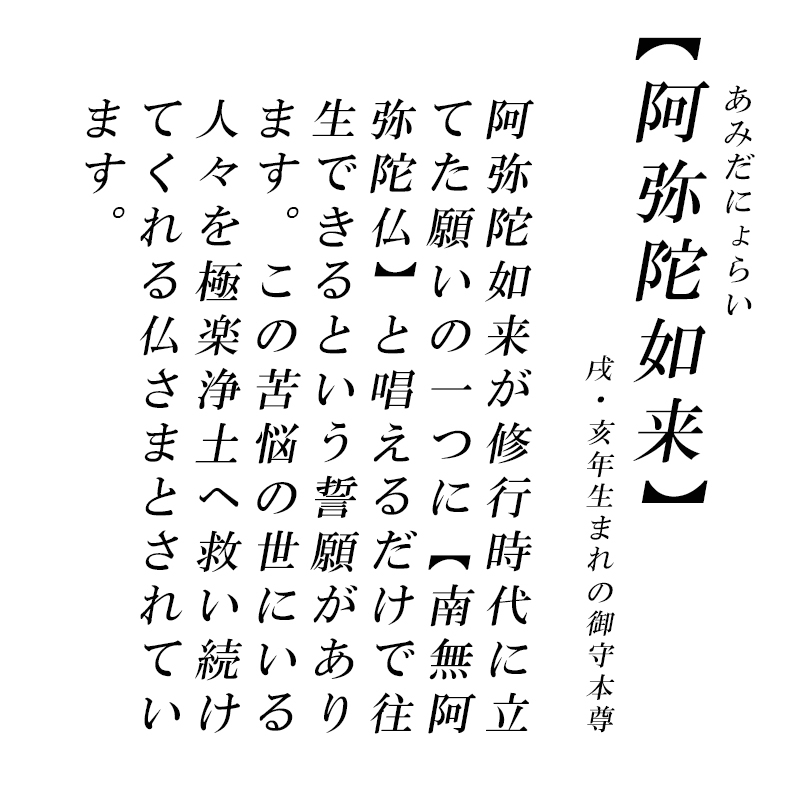 あみだにょらい
【阿弥陀如来】
戌・亥年生まれの御守本尊
阿弥陀如来が修行時代に立
てた願いの一つに【南無阿
弥陀仏】と唱えるだけで往
生できるという誓願があり
ます。この苦悩の世にいる
人々を極楽浄土へ救い続け
てくれる仏さまとされてい
ます。